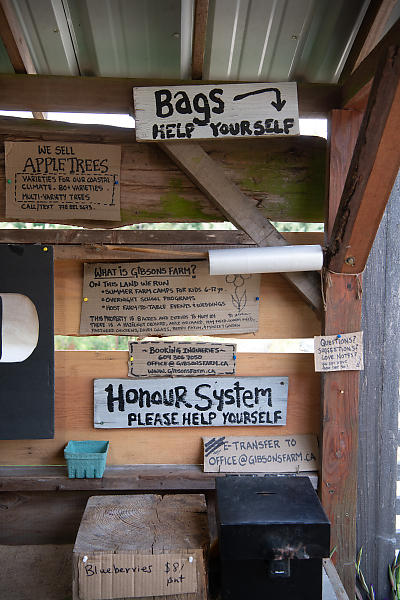 Bags
HELP YOURSELF
WE SELL
APPLE TREES
VARIETIES FOR OUR COASTAL
CLIMATE. 80+ VARIETIES.
MULTI-VARIETY TREES
CALL/TEXT
WHAT IS GIBSONS FARM?
ON THIS LAND WE RUN
• SUMMER FARM CAMPS FOR KIDS 6-12 yo
• OVERNIGHT SCHOOL PROGRAMS
• HOST FARM-TO-TABLE EVENTS & WEDDINGS
THIS PROPERTY IS 5 ACRES AND EXTENDS TO
THERE IS A HAZELNUT ORCHARD,
~ BOOKING INQUIRIES ~
OFFICE@GIBSONSFARM.CA
WWW.GIBSONSFARM.CA
QUESTIONS?
SUGGESTIONS?
LOVE NOTES?
HONOUR SYSTEM
PLEASE HELP YOURSELF
E-TRANSFER TO
OFFICE@GIBSONSFARM.CA
Blueberries $8/
pnt